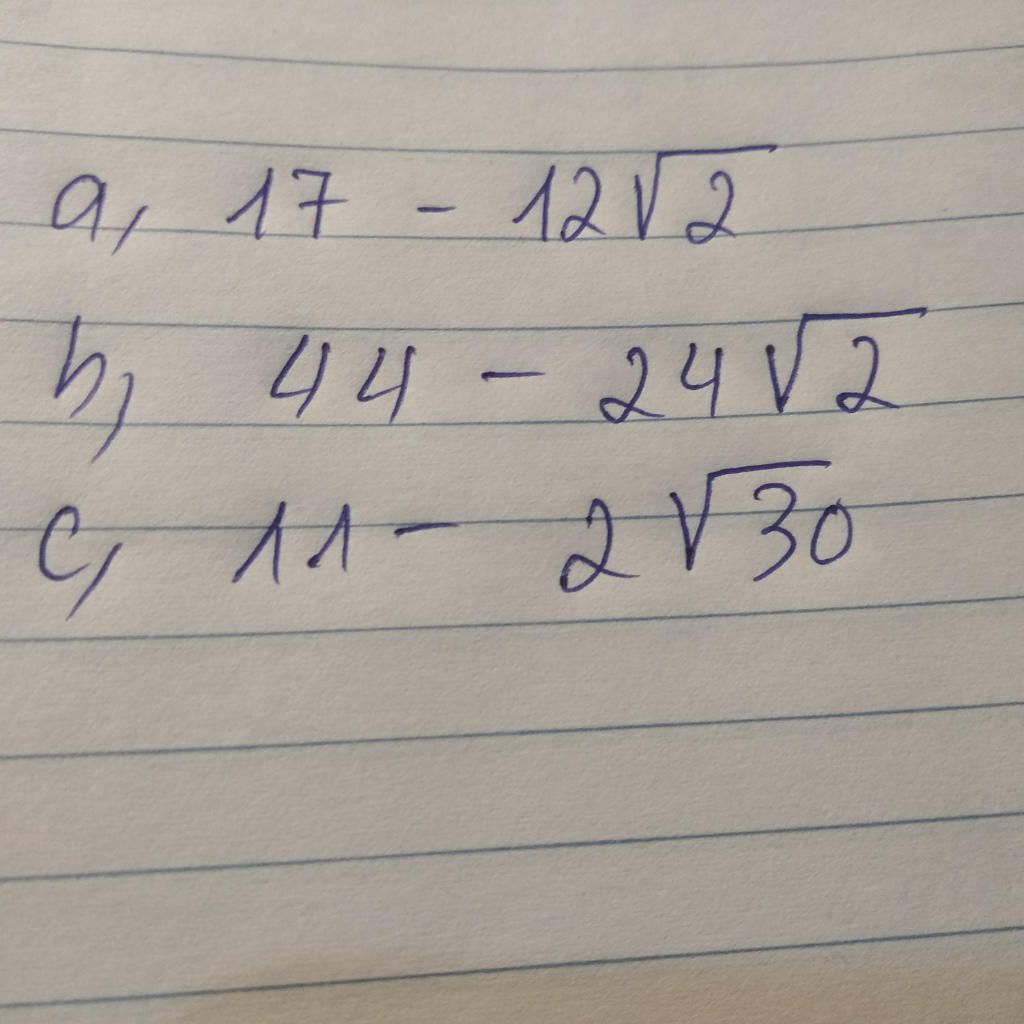 a, 17 - 12√2
b, 44 - 24√2
c, 11 - 2√30